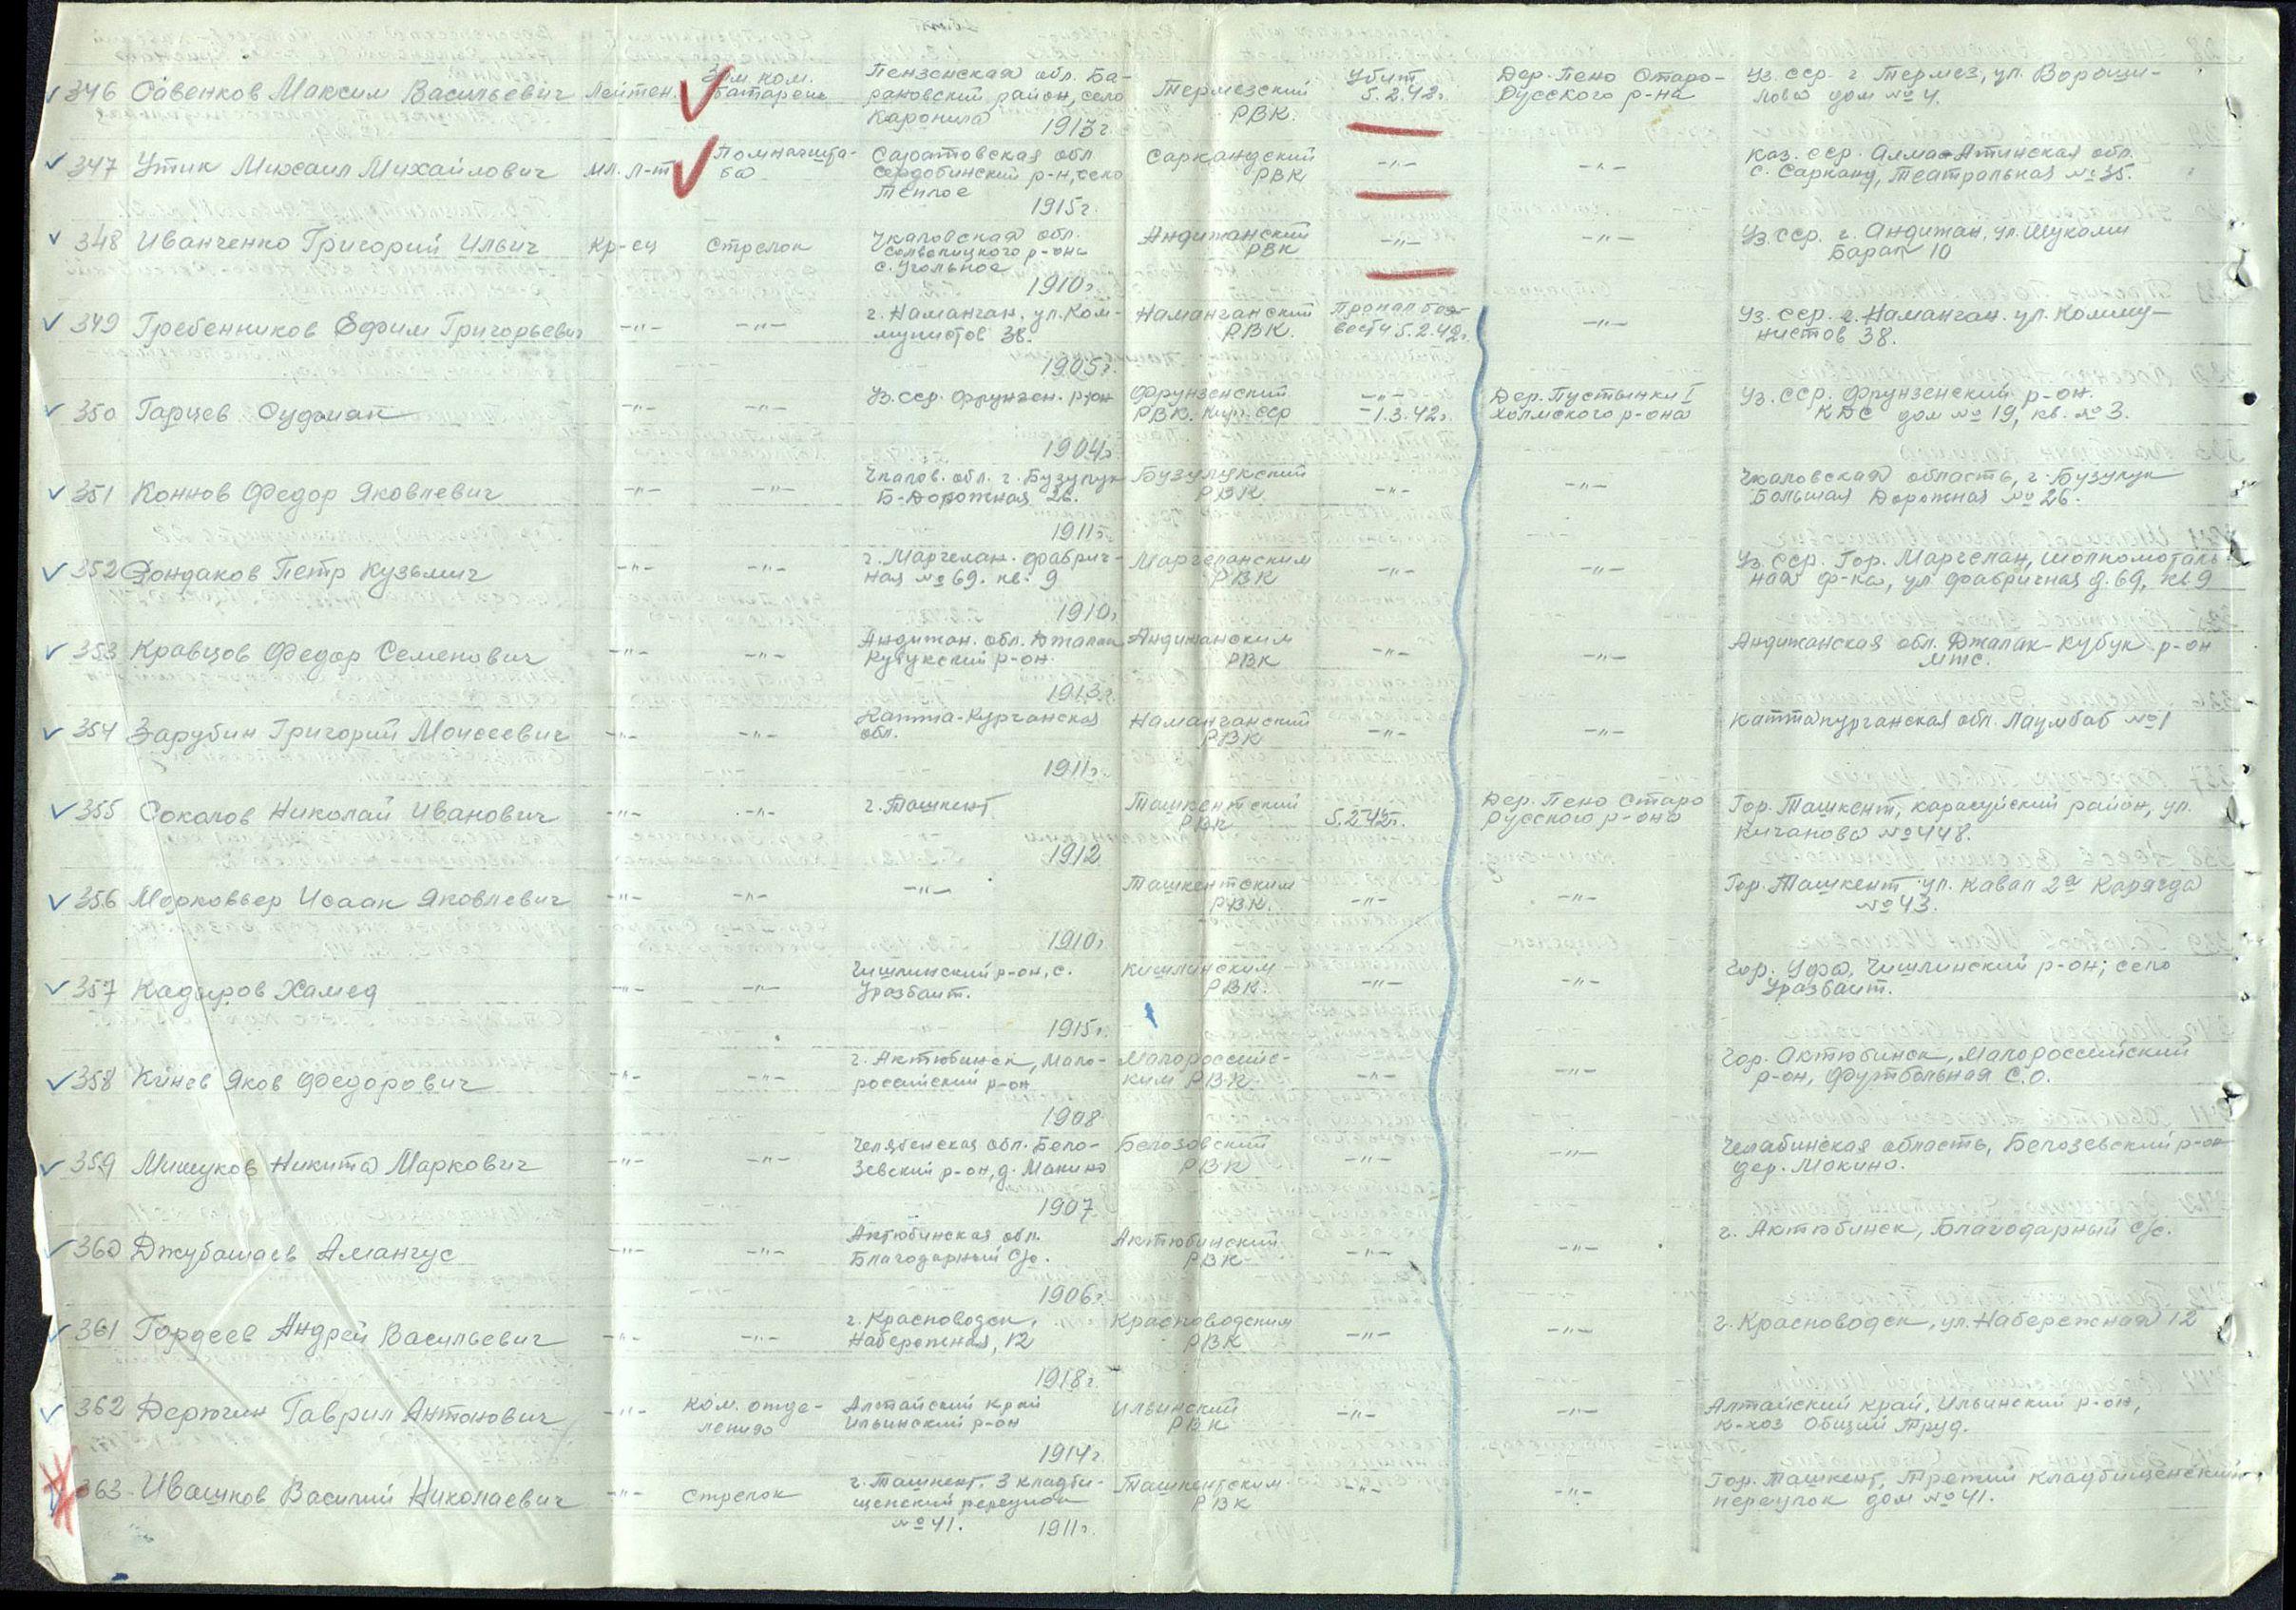 346 Савенков Максим Васильевич Лейтен. Зам. ком. батареи Пензенская обл. Ба-
рановский район, село
1913г. Термезский РВК. Убит 5.2.42г. Дер. Пено Старо-
Русского р-на Уз. сср. г. Термез, ул. Вороши-
лова дом № 4.
347 Утик Михаил Михайлович мл. л-т Помначшта-
ба Саратовская обл.
Сердобинский р-н, село
Теплое
1915г. Саркандский РВК -"- -"- Каз. сср. Алма-Атинская обл.
с. Сарканд, Театральная № 35.
348 Иванченко Григорий Ильич Кр-ец Стрелок Чкаловская обл.
р-она
с. Угольное
1910г. Андижанский РВК -"- -"- Уз. сср. г. Андижан, ул.
Барак 10
349 Гребенников Ефим Григорьевич -"- -"- г. Наманган, ул. Ком-
мунистов 38.
1905г. Наманганский РВК. Пропал без-
вести 5.2.42г. -"- Уз. сср. г. Наманган. ул. Комму-
нистов 38.
350 Гарцев Суфиан -"- -"- Уз. сср. Фрунзен. р-он
1904г. Фрунзенский
РВК. Кир. сср -"-
-1.3.42г. Дер. Пустынки I
Холмского р-она Уз. сср. Фрунзенский р-он.
КДС дом № 19, кв. № 3.
351 Коннов Федор Яковлевич -"- -"- Чкалов. обл. г. Бузулук
Б-Дорожная 26.
1911г. Бузулукский
РВК -"- -"- Чкаловская область, г. Бузулук
Большая Дорожная № 26.
352 Дондаков Петр Кузьмич -"- -"- г. Маргелан. Фабрич-
ная № 69. кв. 9
1910г. Маргеланским
РВК -"- -"- Уз. сср. Гор. Маргелан, шолкомоталь-
ная ф-ка, ул. Фабричная д. 69, кв. 9
353 Кравцов Федор Семенович -"- -"- Андижан. обл. Джалак
Кубукский р-он.
1913г. Андижанским
РВК -"- -"- Андижанская обл. Джалак-Кубук. р-он
мтс.
354 Зарубин Григорий Моисеевич -"- -"- Катта-Курганская
обл.
1911г. Наманганский
РВК -"- -"- Каттакурганская обл. Лаумбаб № 1
355 Соколов Николай Иванович -"- -"- г. Ташкент
1912 Ташкентский
РВК 5.2.42г. Дер. Пено Старо
русского р-она Гор. Ташкент, карасуйский район, ул.
Кичанова № 448.
356 Морковьер Исаак Яковлевич -"- -"- -"-
1910г. Ташкентским
РВК. -"- -"- Гор. Ташкент ул. Кавал 2а
№ 43.
357 Кадыров Хамед -"- -"- Чишлинский р-он, с.
Уразбаит.
1915г. Кишлинским
РВК. -"- -"- Гор. Уфа, Чишлинский р-он; село
Уразбаит.
358 Кинев Яков Федорович -"- -"- г. Актюбинск, Мало-
российский р-он
1908 Малороссийс-
ким РВК -"- -"- Гор. Актюбинск, Малороссийский
р-он, Футбольная С.О.
359 Мишуков Никита Маркович -"- -"- Челябенская обл. Бело-
зевский р-он, д. Макино
1907 Белозовский
РВК -"- -"- Челабинская область, Белозевский р-он
дер. Мокино.
360 Джубашаев Амангус -"- -"- Актюбинская обл.
Благодарный С/о.
1906г. Актюбинский
РВК -"- -"- г. Актюбинск, Благодарный с/с.
361 Гордеев Андрей Васильевич -"- -"- г. Красноводск,
Набережная, 12
1918г. Красноводским
РВК -"- -"- г. Красноводск, ул. Набережная 12
362 Дерюгин Гаврил Антонович -"- Ком. отде-
ления Алтайский край
Ильинский р-он
1914г. Ильинский
РВК -"- -"- Алтайский край, Ильинский р-он,
к-хоз Общий Труд.
363 Ивашков Василий Николаевич -"- стрелок г. Ташкент. 3 кладби-
щенский переулок
№ 41. 1911г. Ташкентским
РВК -"- -"- Гор. Ташкент, Третий Кладбищенский
переулок дом № 41.